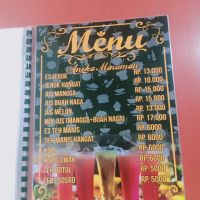 Menu
Aneka Minuman
ES JERUK RP. 13.000
JERUK HANGAT RP. 10.000
JUS MANGGA RP. 15.000
JUS BUAH NAGA RP. 15.000
JUS MELON RP. 13.000
MIX JUS (MANGGA+BUAH NAGA) RP. 17.000
ES TEH MANIS RP. 6000
TEH MANIS HANGAT RP. 6000
KOPI RP. 6000
KOPI LUWAK RP. 6000
TEH BOTOL RP. 5000
TEBS SOSRO RP. 5000